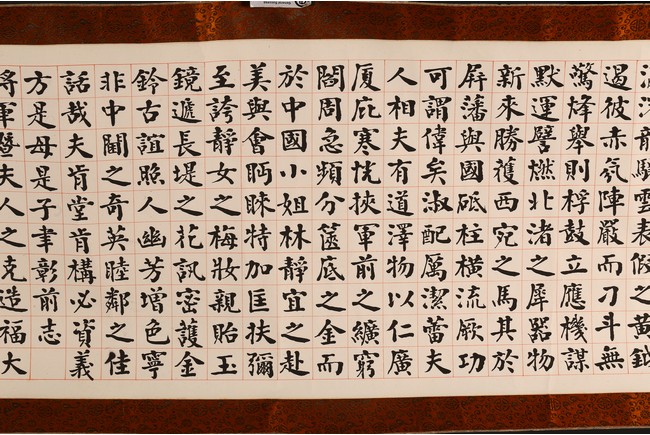 龍驤雲表假之黃鉞
遏彼赤氛陣嚴而刁斗無
驚烽舉則桴鼓立應機謀
默運譬燃北渚之犀器物
新來勝獲西宛之馬其於
屏藩與國砥柱橫流厥功
可謂偉矣淑配厲潔蕾夫
人相夫有道澤物以仁廣
廈庇寒恍挾軍前之纊窮
閻周急頻分篋底之金而
於中國小姐林靜宜之赴
美與會眄睞特加匡扶彌
至誇靜女之梅妝親貽玉
鏡遞長堤之花訊密護金
鈴古誼照人幽芳增色寧
非中閫之奇英睦鄰之佳
話哉夫肯堂肯構必資義
方是母是子聿彰前志
將軍暨夫人之克造福大